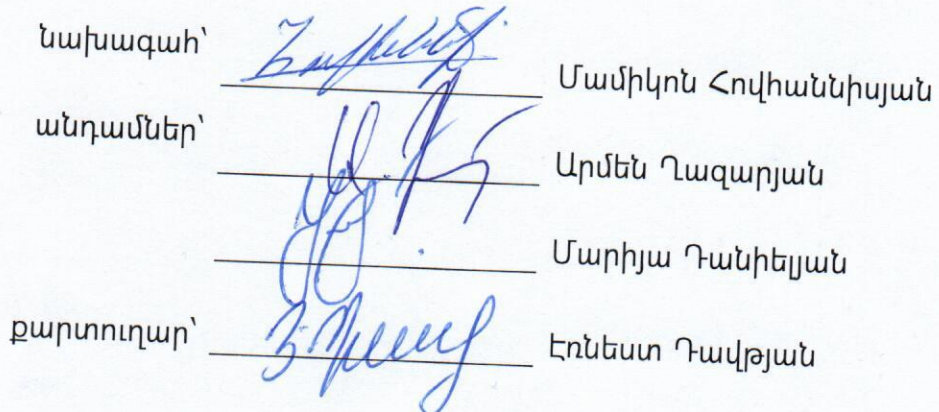 նախագահ՝ Մամիկոն Հովհաննիսյան
անդամներ՝ Արմեն Ղազարյան
Մարիյա Դանիելյան
քարտուղար՝ Էռնեստ Դավթյան